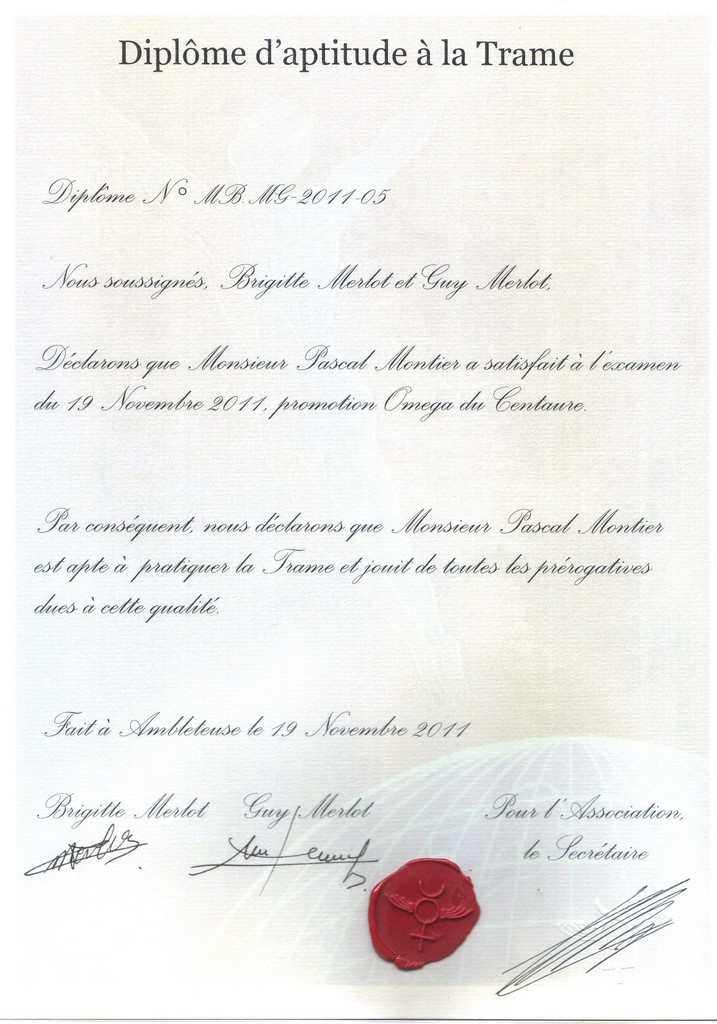 Diplôme d'aptitude à la Trame
Diplôme N° MB.MG-2011-05
Nous soussignés, Brigitte Merlot et Guy Merlot,
Déclarons que Monsieur Pascal Montier a satisfait à l'examen
du 19 Novembre 2011, promotion Omega du Centaure.
Par conséquent, nous déclarons que Monsieur Pascal Montier
est apte à pratiquer la Trame et jouit de toutes les prérogatives
dues à cette qualité.
Fait à Ambleteuse le 19 Novembre 2011
Brigitte Merlot Guy Merlot Pour l'Association,
le Secrétaire